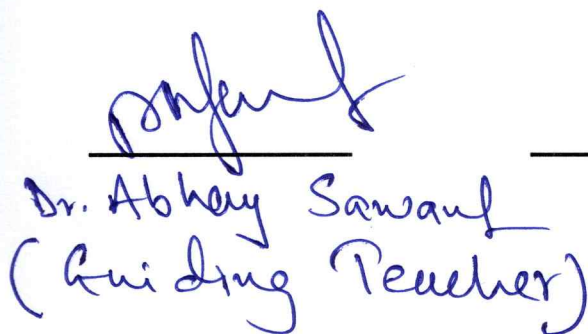 Dr. Abhay Sawant
(Guiding Teacher)